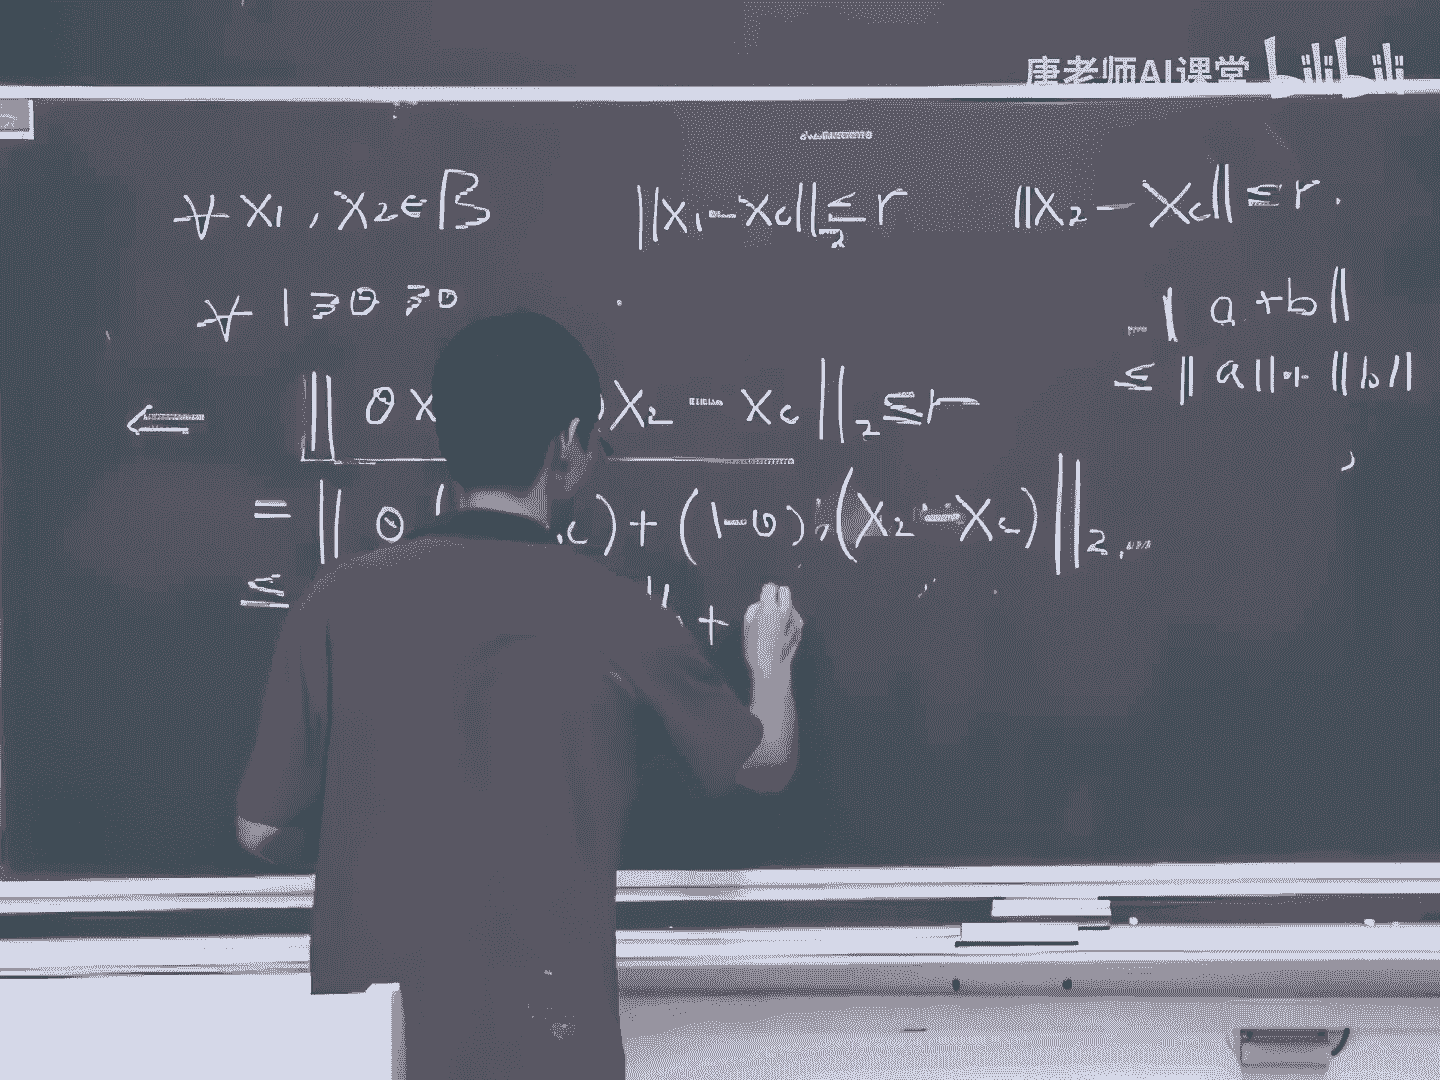 唐老师AI课堂 bilibili
∀ x₁ , x₂ ∈ B ||x₁ - x_c||₂ ≤ r ||x₂ - x_c|| ≤ r .
∀ 1 ≥ θ ≥ 0
|| a + b ||
≤ || a || + || b ||
⇐ || θ x )x₂ - x_c ||₂ ≤ r
= || θ c ) + (1-θ) (x₂ - x_c) ||₂ .
≤ || +